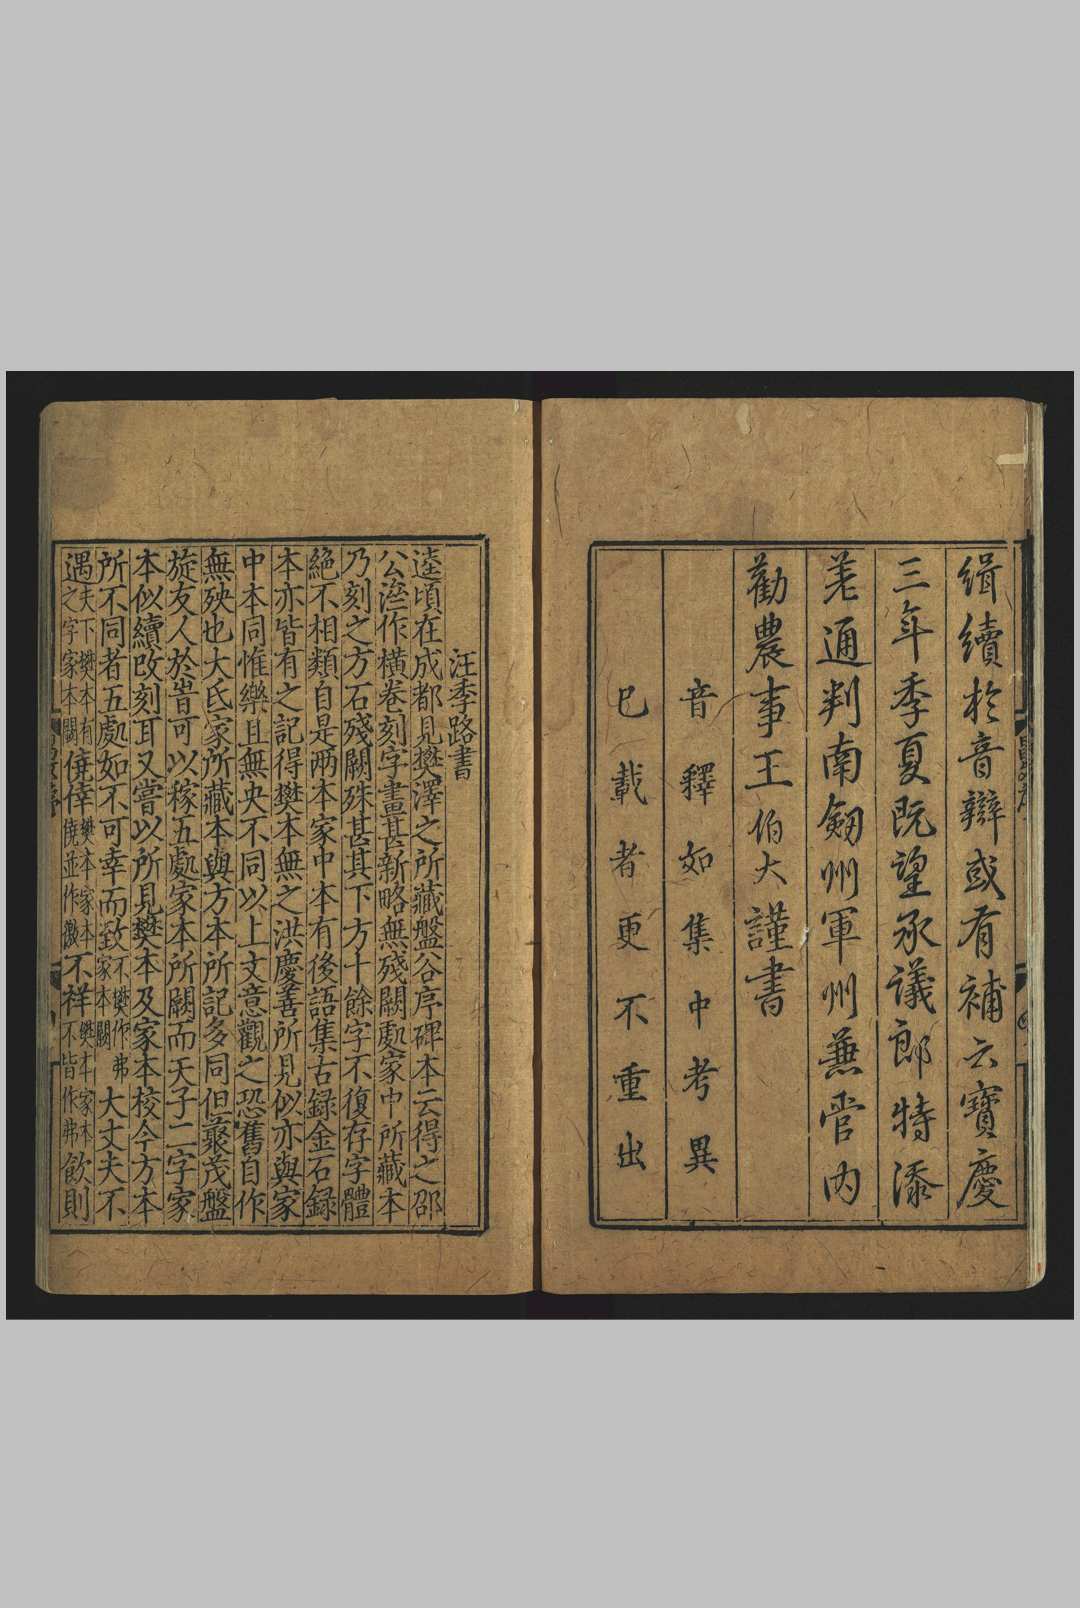 緝續於音辯或有補云寶慶
三年季夏既望承議郎特添
差通判南劔州軍州兼管内
勸農事王伯大謹書
音釋如集中考異
已載者更不重出
汪季路書
逵頃在成都見樊澤之所藏盤谷序碑本云得之邵
公濟作橫卷刻字畫甚新略無殘闕處家中所藏本
乃刻之方石殘闕殊甚其下方十餘字不復存字體
絕不相類自是兩本家中本有後語集古録金石録
本亦皆有之記得樊本無之洪慶善所見似亦與家
中本同惟樂且無央不同以上文意觀之恐舊自作
無殃也大氐家所藏本與方本所記多同但藂茂盤
旋友人於甞可以稼五處家本所闕而天子二字家
本似續改刻耳又嘗以所見樊本及家本校今方本
所不同者五處如不可幸而致樊作弗不家本闕大丈夫不
遇樊本有夫下之字家本闕僥倖樊本家本僥並作徼不祥樊本家本不皆作弗飲則